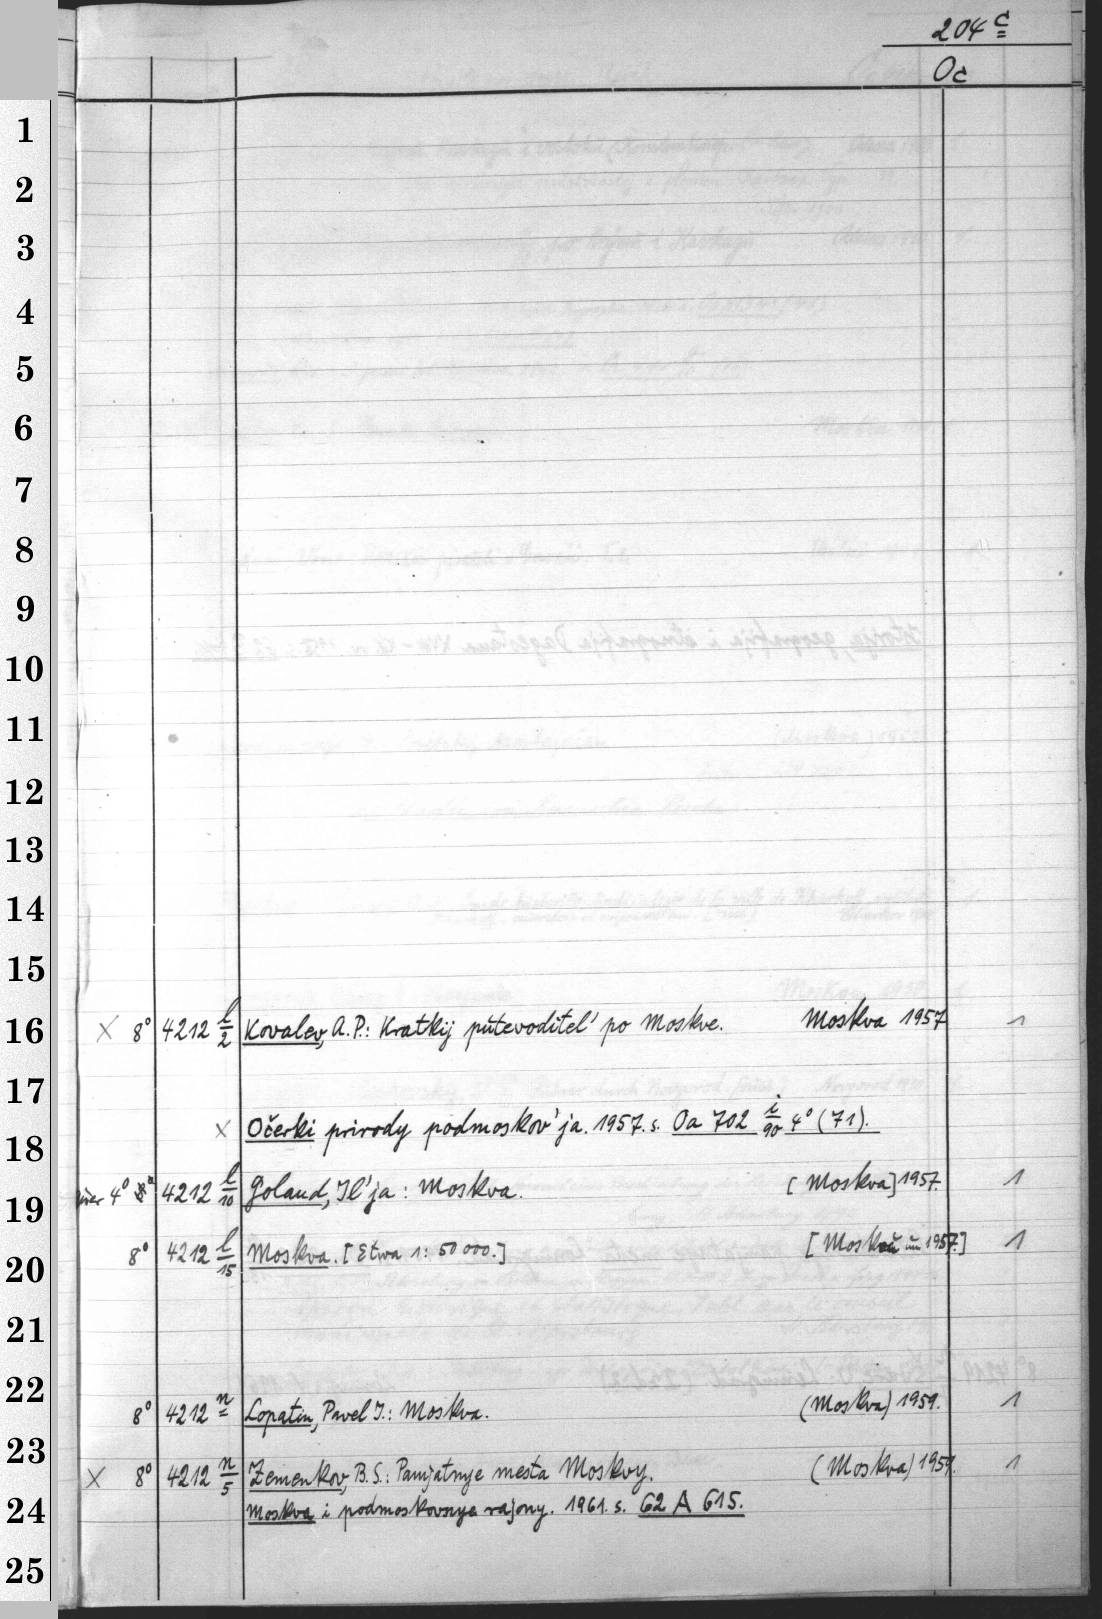 204 c
Oc
1
2
3
4
5
6
7
8
9
10
11
12
13
14
15
16 X 8° 4212 l/2 Kovalev, A.P.: Kratkij putevoditel' po Moskve. Moskva 1957 1
17
18 X Očerki prirody podmoskov'ja. 1957. s. Oa 702 i/90 4° (71).
19 4° 4212 l/10 Goland, Il'ja: Moskva. [Moskva] 1957. 1
20 8° 4212 l/15 Moskva. [Etwa 1:50000.] 1957.] 1
21
22 8° 4212 n Lopatin, Pavel I.: Moskva. (Moskva) 1959. 1
23 X 8° 4212 n/5 Zemenkov, B.S.: Pamjatnye mesta Moskvy. (Moskva) 1959. 1
24 Moskva i podmoskovnye rajony. 1961. s. 62 A 615.
25